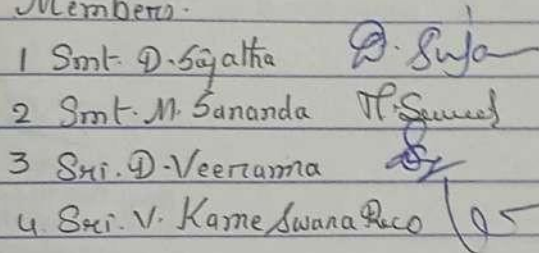 Members.
1 Smt. D. Sujatha D. Suja
2 Smt. M. Sananda
3 Sri. D. Veeranna
4. Sri. V. Kameswara Rao